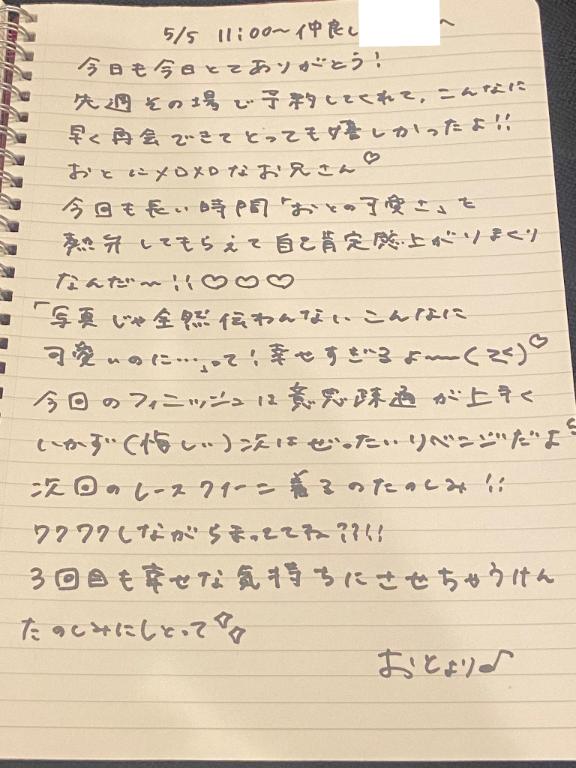 5/5 11:00~仲良し
今日も今日とてありがとう!
先週その場で予約してくれて、こんなに
早く再会できてとっても嬉しかったよ!!
おとにメロメロなお兄さん♡
今回も長い時間「おとの可愛さ」を
熱弁してもらえて自己肯定感上がりまくり
なんだ〜!!♡♡♡
「写真じゃ全然伝わんない、こんなに
可愛いのに…」って!幸せすぎるよ〜(><)♡
今回のフィニッシュは意思疎通が上手く
いかず(悔しい)次はぜったいリベンジだよ
次回のレースクイーン着るのたのしみ!!
ワクワクしながらまっててね??!!
3回目も幸せな気持ちにさせちゃうけん
たのしみにしとって
おとより♪